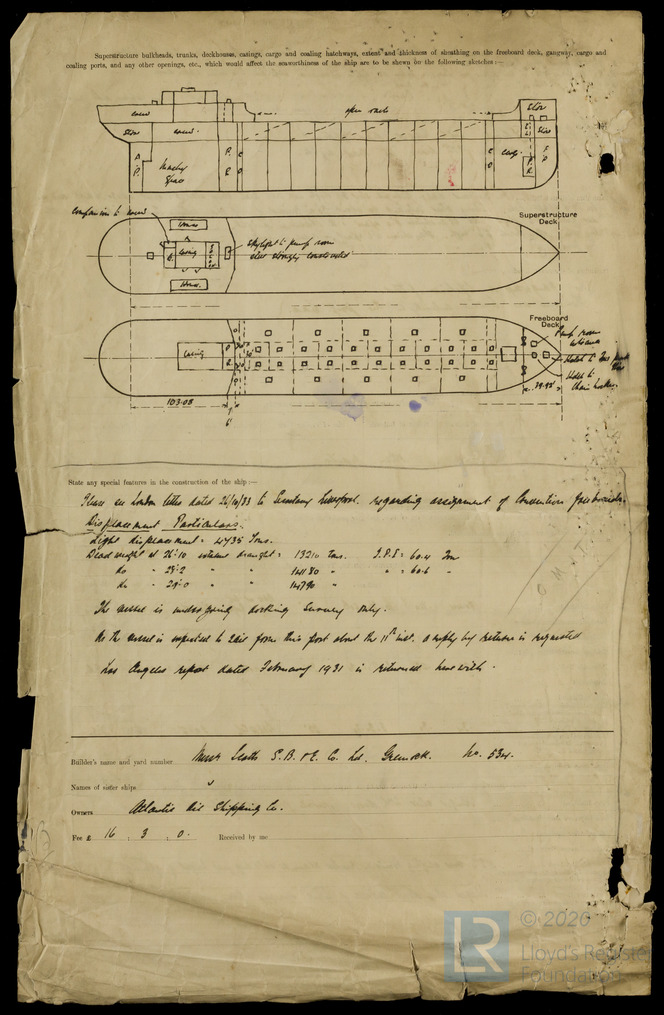 Superstructure bulkheads, trunks, deckhouses, casings, cargo and coaling hatchways, extent and thickness of sheathing on the freeboard deck, gangway, cargo and
coaling ports, and any other openings, etc., which would affect the seaworthiness of the ship are to be shewn on the following sketches:—
Stor
open rails
Stores
Stor
Machy
Space
Companion to
Superstructure
Deck
Casing
Skylight to pump room
also strongly constructed
Freeboard
Deck
Pump room
Casing
Hatch to
Hatch to
Chain locker
39.98'
103.08
6'
State any special features in the construction of the ship:—
Please see London letter dated 26/10/33 to Secretary Liverpool regarding assignment of Convention freeboards.
Displacement Particulars.
Light displacement = 4735 Tons.
Deadweight at 26'.10 draught = 13210 tons. T.P.I = 60.4 Tons
do " 28'.2 " " 14180 " " = 60.6 "
do " 29'.0 " " 14790 "
The vessel is undergoing docking Survey only.
As the vessel is expected to sail from this port about the 11th inst. a reply by return is requested
Los Angeles report dated February 1931 is returned herewith.
Builder's name and yard number Messrs Scotts S.B. & E. Co. Ld. Greenock. No. 534.
Names of sister ships
Owners Atlantic Oil Shipping Co.
Fee £ 16 : 3 : 0. Received by me
LR
© 2020
Lloyd's Register
Foundation